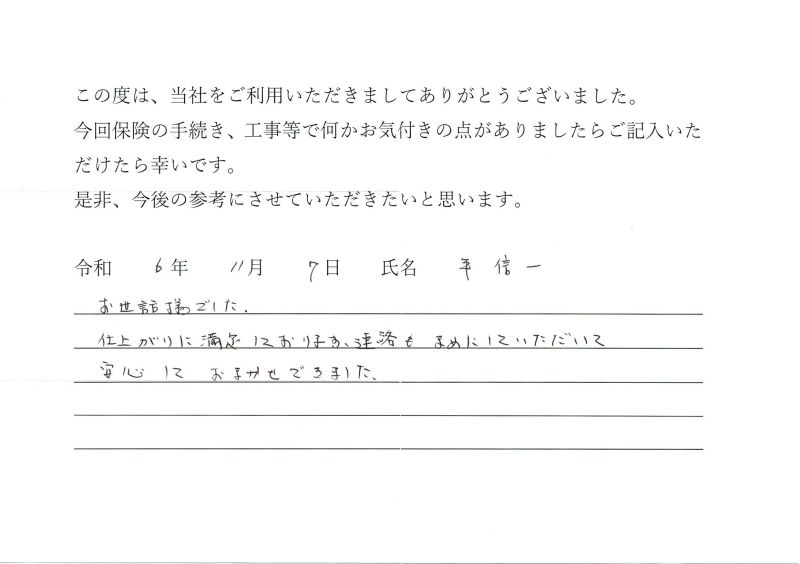 この度は、当社をご利用いただきましてありがとうございました。
今回保険の手続き、工事等で何かお気付きの点がありましたらご記入いた
だけたら幸いです。
是非、今後の参考にさせていただきたいと思います。
令和 6年 11月 7日 氏名 平 信一
お世話様でした。
仕上がりに満足しております、連絡も まめにしていただいて
安心して おまかせできました。